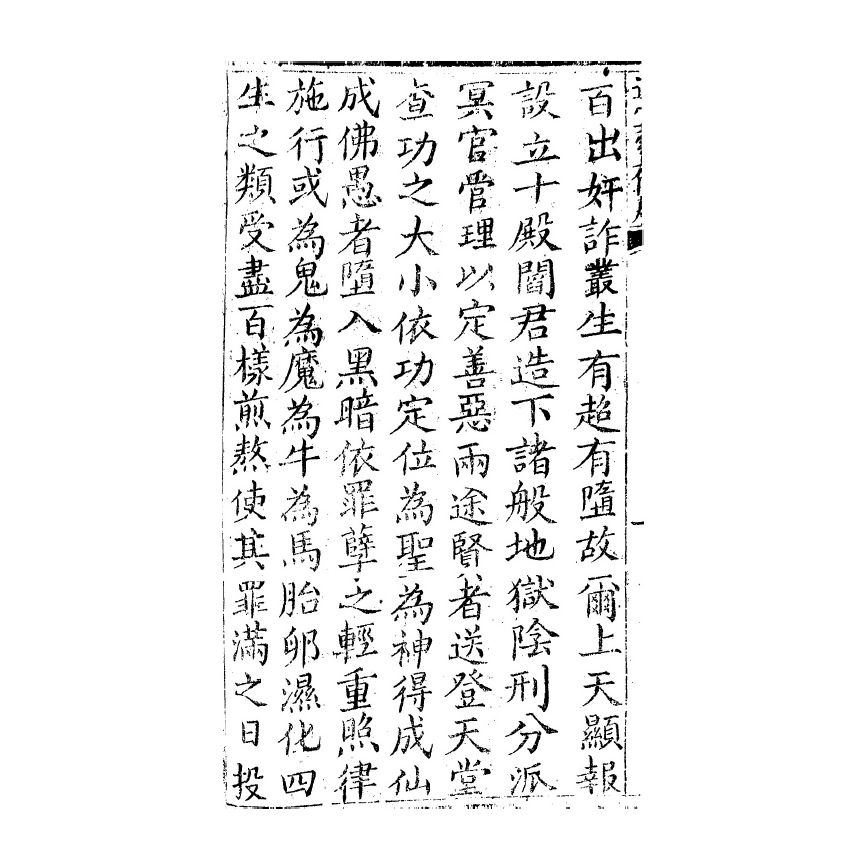 百出奸詐叢生有超有墮故爾上天顯報
設立十殿閻君造下諸般地獄陰刑分派
冥官管理以定善惡兩途賢者送登天堂
查功之大小依功定位為聖為神得成仙
成佛愚者墮入黑暗依罪孽之輕重照律
施行或為鬼為魔為牛為馬胎卵濕化四
生之類受盡百樣煎熬使其罪滿之日投